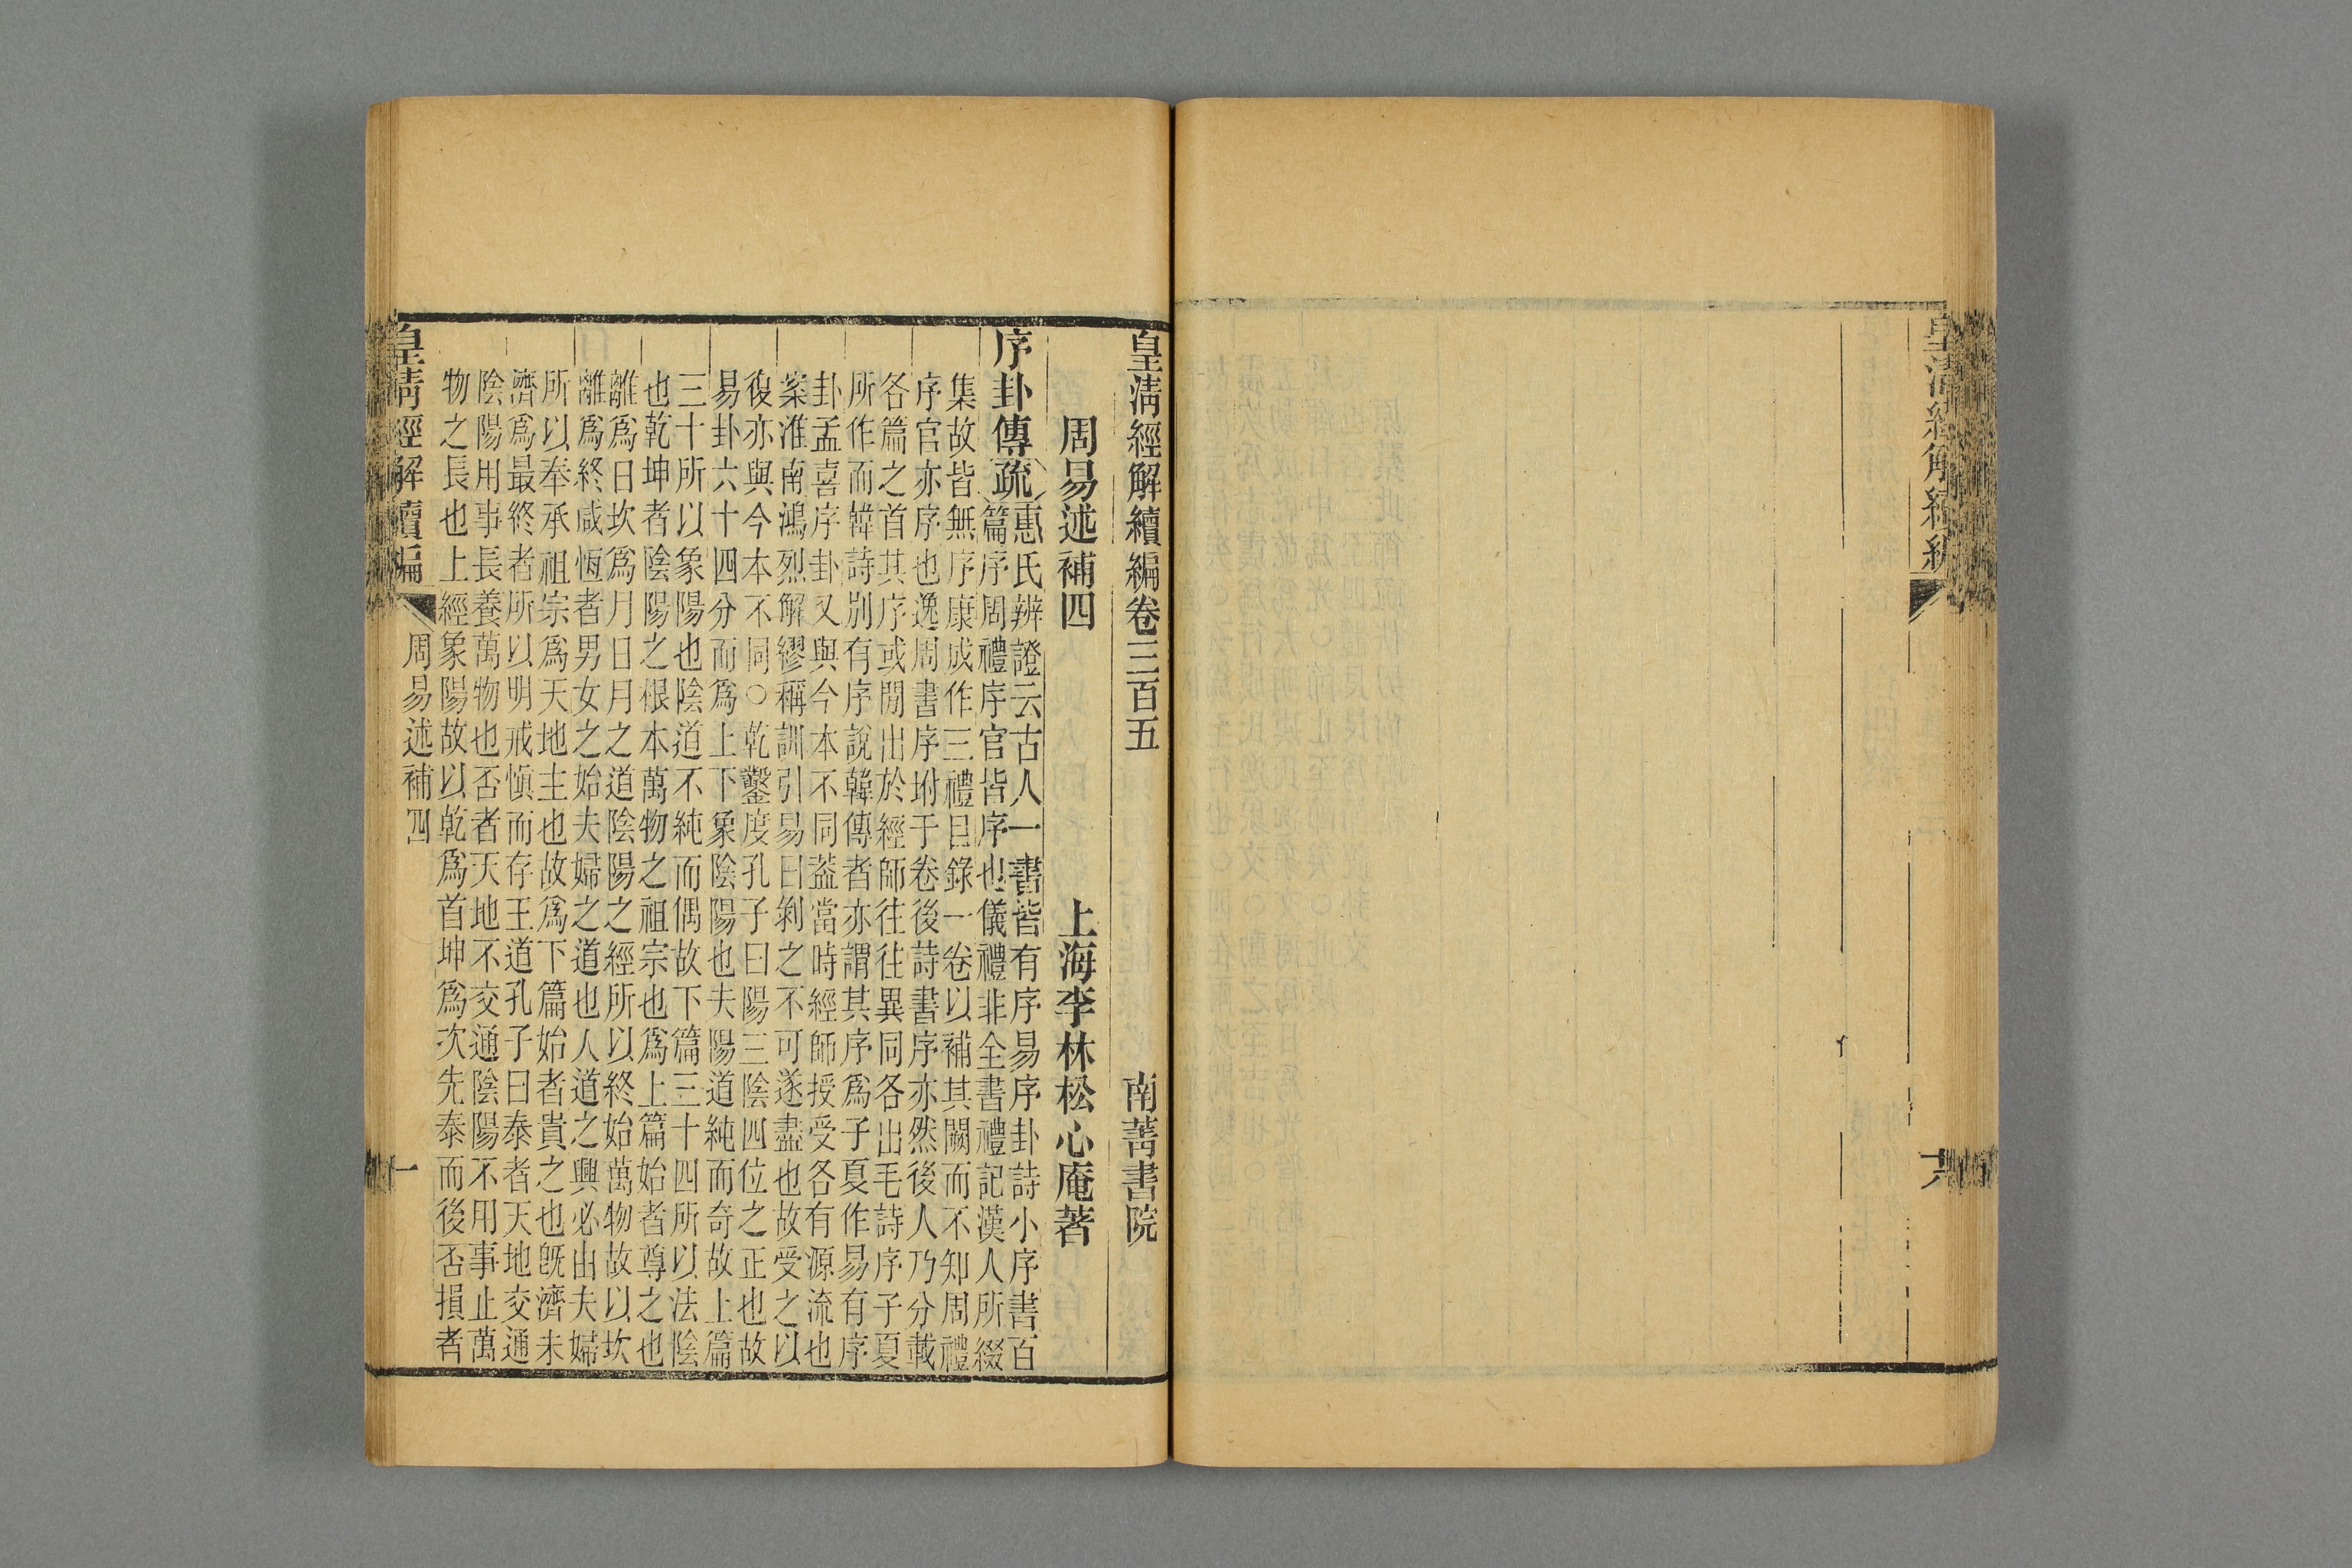 皇清經解續編
六
皇清經解續編卷三百五
南菁書院
周易述補四
上海李林松心庵著
序卦傳疏
惠氏辨證云古人一書皆有序易序卦詩小序書百
篇序周禮序官皆序也儀禮非全書禮記漢人所綴
集故皆無序康成作三禮目錄一卷以補其闕而不知周禮
序官亦序也逸周書序坿于卷後詩書序亦然後人乃分載
各篇之首其序或閒出於經師往往異同各出毛詩序子夏
所作而韓詩別有序說韓傳者亦謂其序爲子夏作易有序
卦孟喜序卦又與今本不同葢當時經師授受各有源流也
案淮南鴻烈解繆稱訓引易曰剝之不可遂盡也故受之以
復亦與今本不同○乾鑿度孔子曰陽三陰四位之正也故
易卦六十四分而爲上下象陰陽也夫陽道純而奇故上篇
三十所以象陽也陰道不純而偶故下篇三十四所以法陰
也乾坤者陰陽之根本萬物之祖宗也爲上篇始者尊之也
離爲日坎爲月日月之道陰陽之經所以終始萬物故以坎
離爲終咸恆者男女之始夫婦之道也人道之興必由夫婦
所以奉承祖宗爲天地主也故爲下篇始者貴之也旣濟未
濟爲最終者所以明戒愼而存王道孔子曰泰者天地交通
陰陽用事長養萬物也否者天地不交通陰陽不用事止萬
物之長也上經象陽故以乾爲首坤爲次先泰而後否損者
皇清經解續編
周易述補四
一